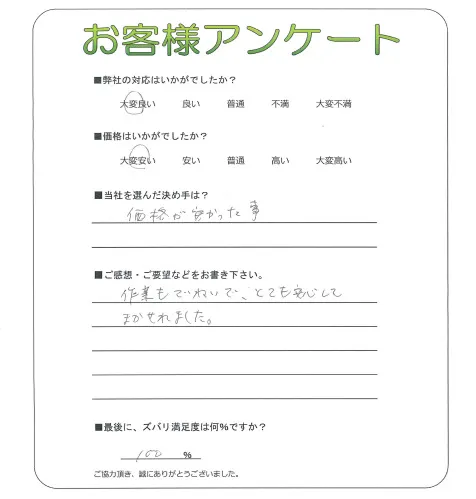 お客様アンケート
■弊社の対応はいかがでしたか？
大変良い 良い 普通 不満 大変不満
■価格はいかがでしたか？
大変安い 安い 普通 高い 大変高い
■当社を選んだ決め手は？
価格が安かった事
■ご感想・ご要望などをお書き下さい。
作業もていねいで、とても安心して
まかせれました。
■最後に、ズバリ満足度は何％ですか？
100 ％
ご協力頂き、誠にありがとうございました。